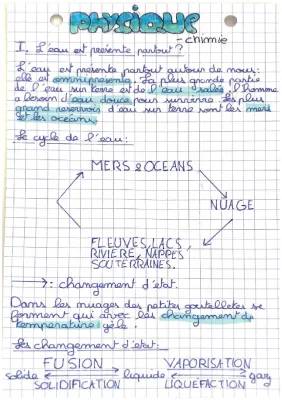 PHYSIQUE
- chimie
I. L'eau est présente partout ?
L'eau est présente partout autour de nous :
elle est omniprésente. La plus grande partie
de l'eau sur terre est de l'eau salée. L'homme
a besoin d'eau douce pour survivre. Les plus
grand réservoirs d'eau sur terre sont les mers
et les océans.
Le cycle de l'eau :
MERS & OCEANS
NUAGE
FLEUVES, LACS,
RIVIÈRE, NAPPES
SOUTERRAINES.
→ : changement d'état.
Dans les nuages des petites goutellettes se
forment qui avec les changement de
température : gèle.
Les changement d'état :
FUSION VAPORISATION
solide liquide gaz
SOLIDIFICATION LIQUEFACTION